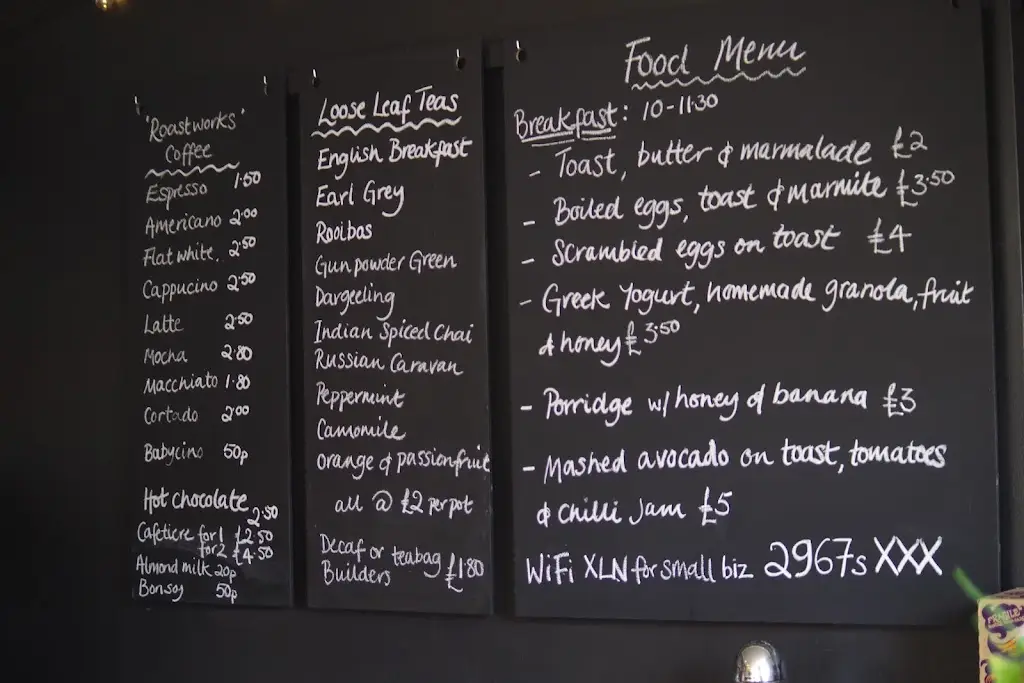 'Roastworks'
Coffee
Espresso 1.50
Americano 2.00
Flat white. 2.50
Cappucino 2.50
Latte 2.50
Mocha 2.80
Macchiato 1.80
Cortado 2.00
Babycino 50p
Hot chocolate 2.50
Cafetiere for 1 £2.50
for 2 £4.50
Almond milk 20p
Bonsoy 50p
Loose Leaf Teas
English Breakfast
Earl Grey
Rooibos
Gunpowder Green
Dargeeling
Indian Spiced Chai
Russian Caravan
Peppermint
Camomile
Orange & passionfruit
all @ £2 per pot
Decaf or teabag
Builders £1.80
Food Menu
Breakfast: 10-11.30
- Toast, butter & marmalade £2
- Boiled eggs, toast & marmite £3.50
- Scrambled eggs on toast £4
- Greek Yogurt, homemade granola, fruit
& honey £3.50
- Porridge w/ honey & banana £3
- Mashed avocado on toast, tomatoes
& chilli jam £5
WiFi XLN for small biz 2967s XXX
FRAGILE